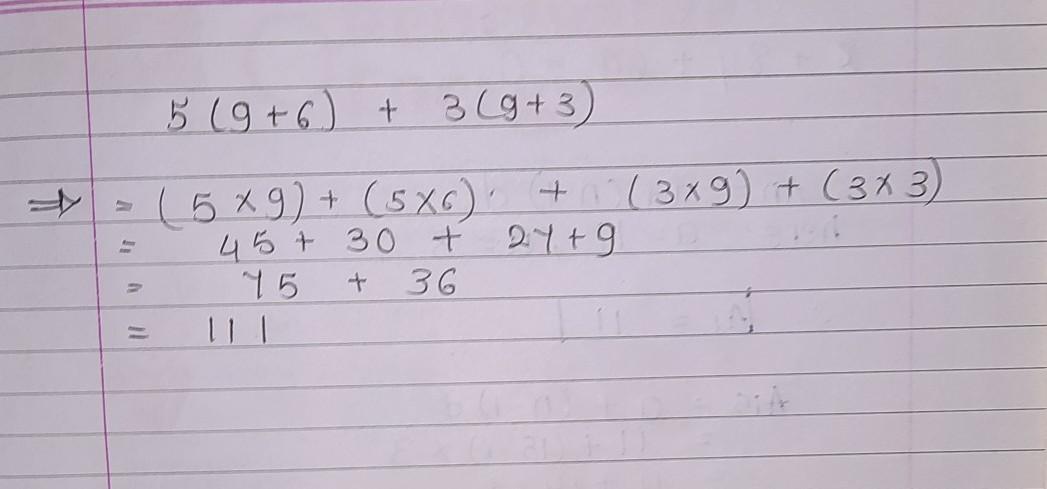 5 (9+6) + 3 (9+3)
⇒ = (5 × 9) + (5×6) + (3×9) + (3×3)
= 45 + 30 + 27+9
= 75 + 36
= 111